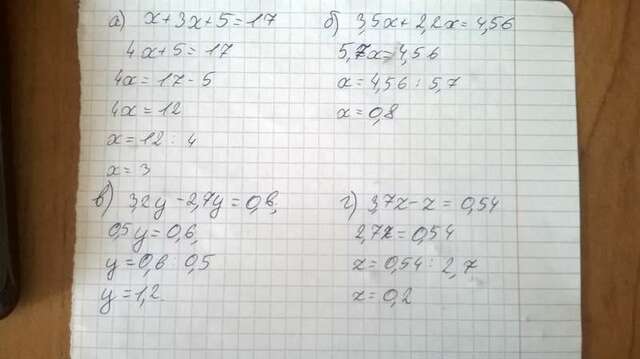 а) x + 3x + 5 = 17
4x + 5 = 17
4x = 17 - 5
4x = 12
x = 12 : 4
x = 3
б) 3,5x + 2,2x = 4,56
5,7x = 4,56
x = 4,56 : 5,7
x = 0,8
в) 3,2y - 2,7y = 0,6,
0,5y = 0,6,
y = 0,6 : 0,5
y = 1,2.
г) 3,7x - x = 0,54
2,7x = 0,54
x = 0,54 : 2,7
x = 0,2